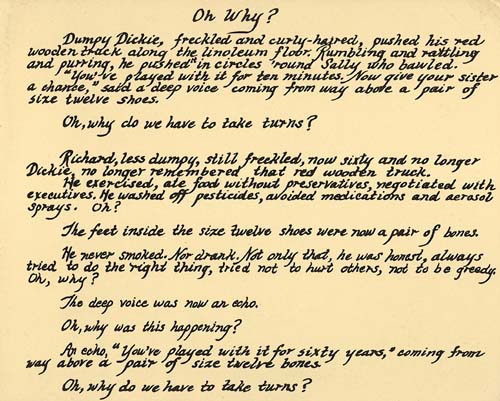 Oh Why?
Dumpy Dickie, freckled and curly-haired, pushed his red
wooden truck along the linoleum floor. Rumbling and rattling
and purring, he pushed in circles 'round Sally who bawled.
"You've played with it for ten minutes. Now give your sister
a chance," said a deep voice coming from way above a pair of
size twelve shoes.
Oh, why do we have to take turns?
Richard, less dumpy, still freckled, now sixty and no longer
Dickie, no longer remembered that red wooden truck.
He exercised, ate food without preservatives, negotiated with
executives. He washed off pesticides, avoided medications and aerosol
sprays. Oh?
The feet inside the size twelve shoes were now a pair of bones.
He never smoked. Nor drank. Not only that, he was honest, always
tried to do the right thing, tried not to hurt others, not to be greedy.
Oh, why?
The deep voice was now an echo.
Oh, why was this happening?
An echo, "You've played with it for sixty years," coming from
way above a pair of size twelve bones.
Oh, why do we have to take turns?